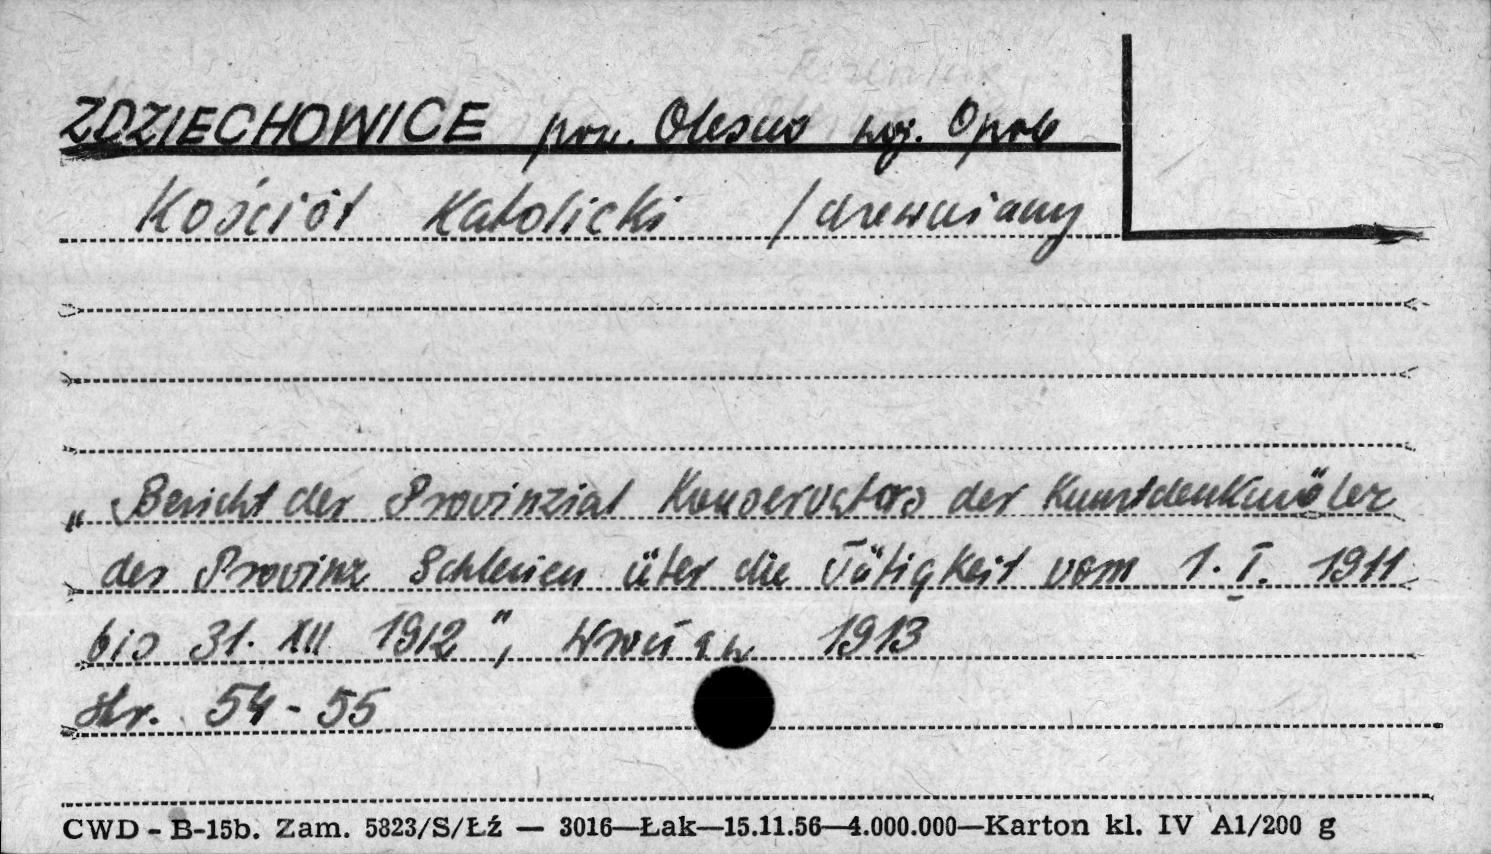 ZDZIECHOWICE pow. Olesno woj. Opole
Kościół Katolicki /drewniany
"Bericht des Provinzial Konservators der Kunstdenkmäler
der Provinz Schlesien über die Tätigkeit vom 1. I. 1911
bis 31. XII 1912", Wrocław 1913
str. 54-55
CWD - B-15b. Zam. 5823/S/Łź — 3016—Łak—15.11.56—4.000.000—Karton kl. IV A1/200 g